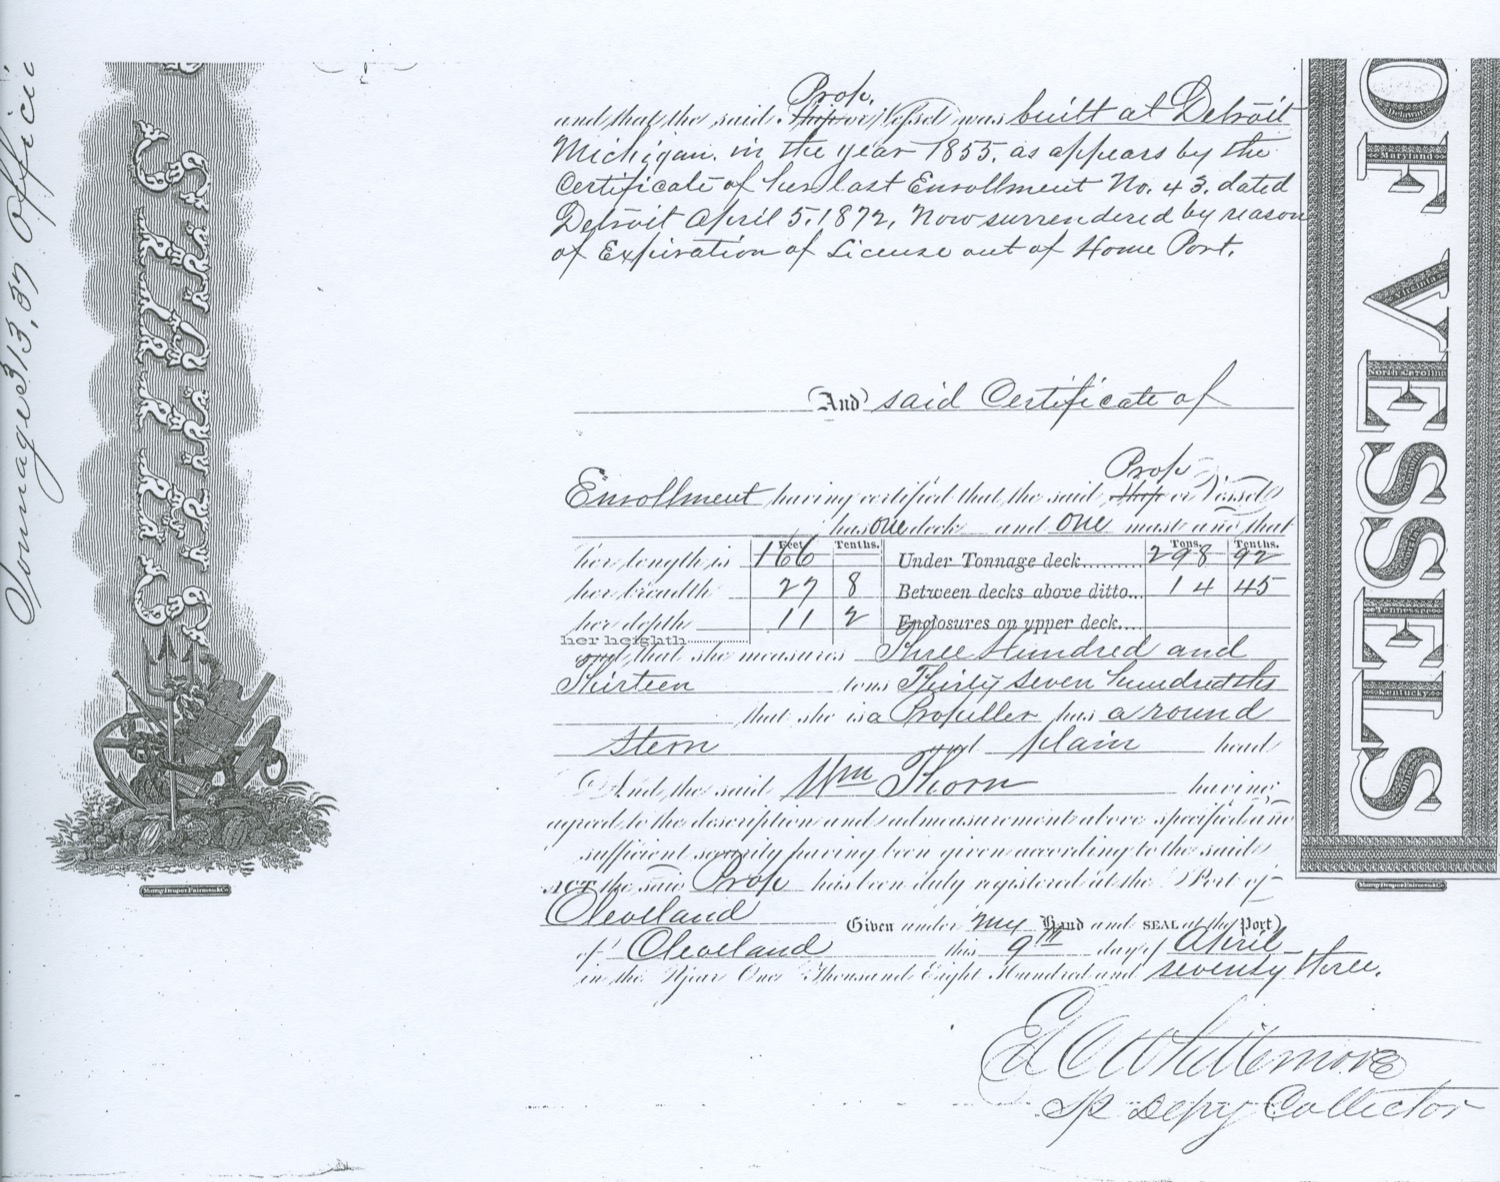 Prop.
and that the said Ship or Vessel was built at Detroit
Michigan. in the year 1855. as appears by the
Certificate of her last Enrollment No. 43. dated
Detroit April 5. 1872, Now surrendered by reason
of Expiration of License out of Home Port.
And said Certificate of
Prop
Enrollment having certified that the said Ship or Vessel
has one deck and one mast and that
Feet Tenths. Tons. Tenths.
her length is 166 Under Tonnage deck......... 298 92
her breadth 27 8 Between decks above ditto... 14 45
her depth 11 2 Enclosures on upper deck....
her heighth
and that she measures Three Hundred and
Thirteen tons Thirty seven hundredths
that she is a Propeller has a round
Stern and plain head
And the said Wm Thorn having
agreed to the description and admeasurement above specified and
sufficient security having been given according to the said
act the said Prop has been duly registered at the Port of
Cleveland Given under my Hand and SEAL at the Port
of Cleveland this 9th day of April
in the Year One Thousand Eight Hundred and seventy three.
Whittemore
Sp Depy Collector
Tonnage 313.37
OF VESSELS
Delaware
Maryland
Virginia
North Carolina
Tennessee
Kentucky